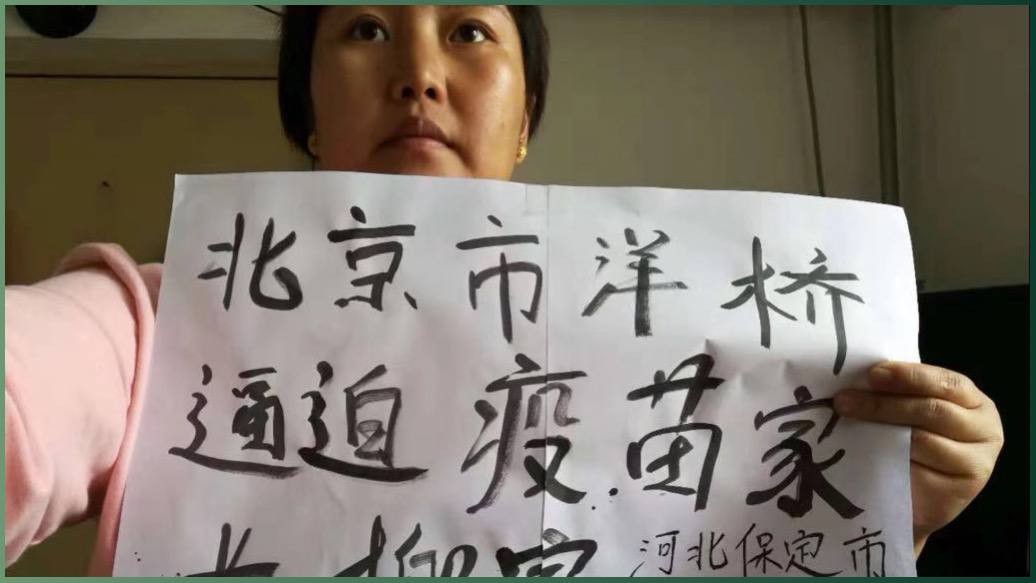 北京市洋桥
逼迫疫苗家
河北保定市